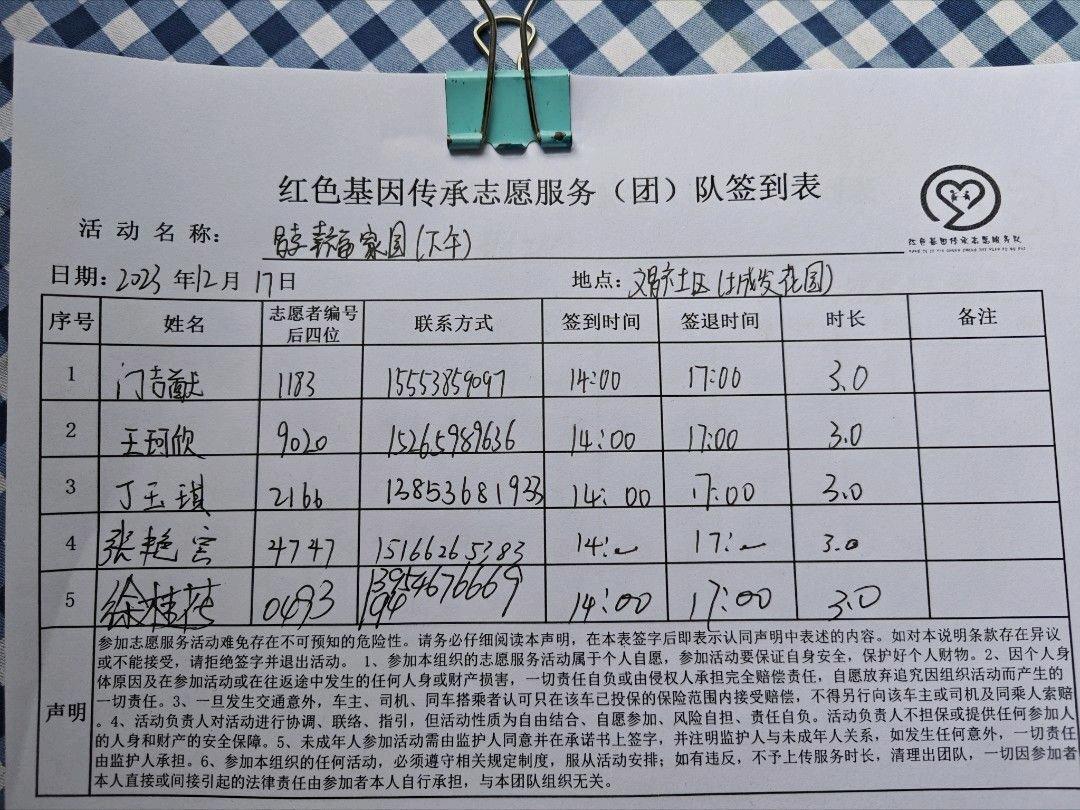 红色基因传承志愿服务（团）队签到表
红色基因传承志愿服务队
活动名称： 幸福家园(下午)
日期：2023年12月17日 地点：文昌社区(城发花园)
序号 姓名 志愿者编号后四位 联系方式 签到时间 签退时间 时长 备注
1 门吉献 1183 15553859097 14:00 17:00 3.0
2 王珂欣 9020 15265989636 14:00 17:00 3.0
3 丁玉琪 2166 13853681933 14:00 17:00 3.0
4 张艳 4747 15166265383 14: 17: 3.0
5 徐桂花 0493 14:00 17:00 3.0
声明
参加志愿服务活动难免存在不可预知的危险性。请务必仔细阅读本声明，在本表签字后即表示认同声明中表述的内容。如对本说明条款存在异议
或不能接受，请拒绝签字并退出活动。 1、参加本组织的志愿服务活动属于个人自愿，参加活动要保证自身安全，保护好个人财物。2、因个人身
体原因及在参加活动或在往返途中发生的任何人身或财产损害，一切责任自负或由侵权人承担完全赔偿责任，自愿放弃追究因组织活动而产生的
一切责任。3、一旦发生交通意外，车主、司机、同车搭乘者认可只在该车已投保的保险范围内接受赔偿，不得另行向该车主或司机及同乘人索赔
。4、活动负责人对活动进行协调、联络、指引，但活动性质为自由结合、自愿参加、风险自担、责任自负。活动负责人不担保或提供任何参加人
的人身和财产的安全保障。5、未成年人参加活动需由监护人同意并在承诺书上签字，并注明监护人与未成年人关系，如发生任何意外，一切责任
由监护人承担。6、参加本组织的任何活动，必须遵守相关规定制度，服从活动安排；如有违反，不予上传服务时长，清理出团队，一切因参加者
本人直接或间接引起的法律责任由参加者本人自行承担，与本团队组织无关。